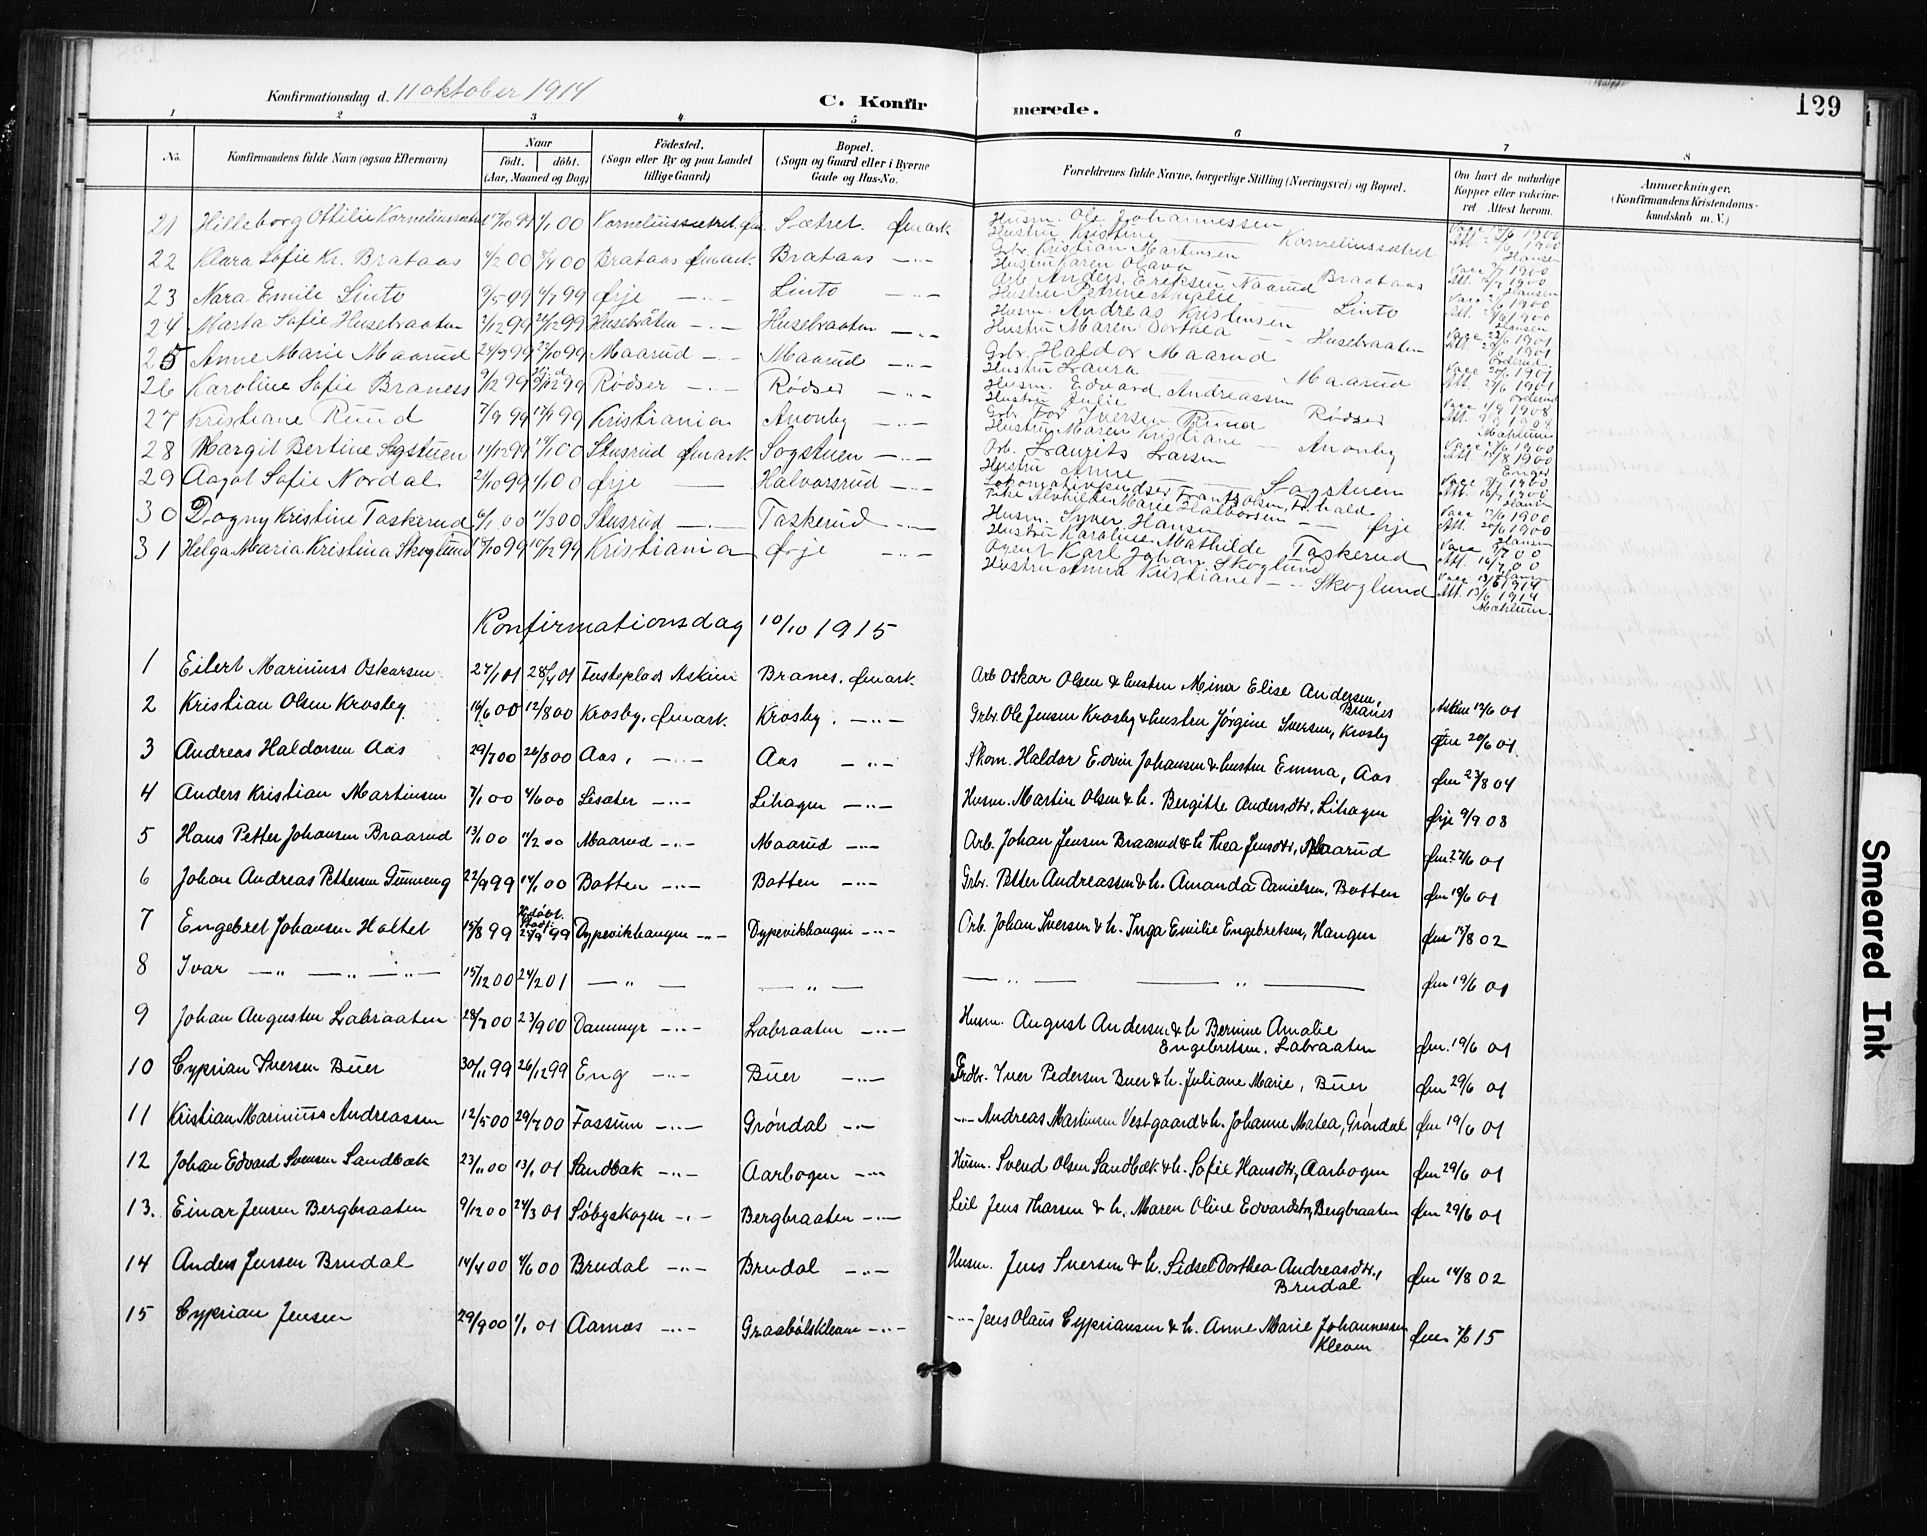 129
Konfirmationsdag d. 11 oktober 1914
C. Konfirmerede.
1 2 3 4 5 6 7 8
No.
Konfirmandens fulde Navn (ogsaa Efternavn)
Naar
født. døbt.
(Aar, Maaned og Dag)
Fødested.
(Sogn eller By og paa Landet
tillige Gaard)
Bopæl.
(Sogn og Gaard eller i Byerne
Gade og Hus-No.
Forældrenes fulde Navne, borgerlige Stilling (Næringsvei) og Bopæl.
Om havt de naturlige
Kopper eller vakcine-
ret Attest herom.
Anmærkninger.
(Konfirmandens Kristendoms-
kundskab m. V.)
21 Hilleborg Ottilie Korneliussætret Korneliussætret Sætret. Ømark Husm. Ole Johannessen
Hustru Kristine — Korneliussætret
22 Klara Sofie Kr. Brataas Brataas Ømark. Brataas —"— Grbr. Kristian Martinsen
Hustru Karen Olava Braataas
23 Nara Emilie Linto 4/7 99 Ørje —"— Linto —"— Arb. Anders Eriksen Naarud
Hustru Petrine Amalie Linto
24 Marta Sofie Husebraaten Husebråten —"— Husebraaten —"— Husm. Andreas Kristensen
Hustru Maren Dorthea —"— Husebraaten
25 Anne Marie Maarud 24/9 99 22/10 99 Maarud —"— Maarud —"— Grbr. Haldor Maarud
Hustru Laura — Maarud
26 Karoline Sofie Braness 9/12 99 Rødser —"— Rødser —"— Husm. Edvard Andreassen
Hustru Julie — Rødser
27 Kristiane Ruud 7/9 99 Kristiania Anonby —"— Grbr. Tor Iversen Ruud
Hustru Maren Kristiane — Anonby
28 Margit Bertine Sogstuen 14/12 99 Skusrud Ømark. Sogstuen —"— Arb. Laurits Larsen
Hustru Anne — Sogstuen
29 Aagot Sofie Nordal 21/10 99 Ørje — Halvorsrud —"— Lokomotivpudser Frantz Olsen, Fr.hald
Pike Alvhilde Marie Halvorsen —"— Ørje
30 Dagny Kristine Taskerud 6/1 00 11/3 00 Skusrud —"— Taskerud —"— Husm. Syver Hansen
Hustru Karoline Mathilde Taskerud
31 Helga Maria Kristina Skoglund 10/12 99 Kristiania Ørje —"— Agent Karl Johan Skoglund
Hustru Anna Kristiane —"— Skoglund Att. 13/6 1914
Konfirmationsdag 10/10 1915
1 Eilert Marinius Oskarsen 27/1 01 28/4 01 Askim Branes, Ømark. Arb Oskar Olsen & hustru Mina Elise Andersen,
Branes Askim 12/6 01
2 Kristian Olsen Krosby 14/6 00 12/8 00 Krosby, Ømark. Krosby. —"— Grbr. Ole Jensen Krosby & hustru Jørgine Iversen, Krosby Øm 20/6 01
3 Andreas Haldorsen Aas 29/7 00 26/8 00 Aas, —"— Aas —"— Skom. Haldor Edvin Johansen & hustru Emma, Aas Øm 23/8 04
4 Anders Kristian Martinsen 7/1 00 4/6 00 Lisæter —"— Lihagen —"— Husm. Martin Olsen & h. Bergitte Andersdtr. Lihagen Ørje 9/9 08
5 Hans Petter Johansen Braarud 13/1 00 11/2 00 Maarud —"— Maarud —"— Arb. Johan Jensen Braarud & h. Thea Jensdtr, Maarud Øm 27/6 01
6 Johan Andreas Pettersen 22/9 99 14/1 00 Botten —"— Botten —"— Grbr. Petter Andreassen & h. Amanda Danielsen, Botten Øm 19/6 01
7 Engebret Johansen Holtet 15/8 99 Dypevikhaugen —"— Dypevikhaugen —"— Arb. Johan Iversen & h. Inga Emilie Engebretsen, Haugen Øm 15/8 02
8 Ivar —"— —"— —"— 15/12 00 24/2 01 —"— —"— —"— —"— Øm 19/6 01
9 Johan Augustsen Labraaten 28/7 00 23/9 00 Dammyr —"— Labraaten —"— Husm. August Andersen & h Bernine Amalie
Engebretsen. Labraaten Øm. 19/6 01
10 Cyprian Iversen Buer 30/11 99 26/12 99 Eng —"— Buer —"— Grdbr. Iver Pedersen Buer & h. Juliane Marie, Buer Øm 29/6 01
11 Kristian Marinius Andreassen 12/5 00 29/7 00 Fossum —"— Grøndal —"— —"— Andreas Martinsen Vestgaard & h. Johanne Matea, Grøndal Øm 19/6 01
12 Johan Edvard Svensen Sandbæk 23/11 00 13/1 01 Sandbæk —"— Aarbogen —"— Husm. Svend Olsen Sandbæk & h. Sofie Hansdtr, Aarbogen Øm 29/6 01
13. Einar Jensen Bergbraaten 9/12 00 24/3 01 Søbyskogen —"— Bergbraaten —"— Leil Jens Tharsen & h. Maren Oline Edvardsdtr, Bergbraaten Øm 29/6 01
14 Anders Jensen Brudal 14/4 00 4/6 00 Brudal —"— Brudal —"— Husm. Jens Iversen & h. Sidsel Dorthea Andreasdtr.,
Brudal Øm 14/8 02
15 Cyprian Jensen 29/9 00 1/1 01 Aarnæs —"— Graabølskleven —"— —"— Jens Olaus Cypriansen & h. Anne Marie Johannessen
Kleven Øm 7/6 15
Smeared Ink